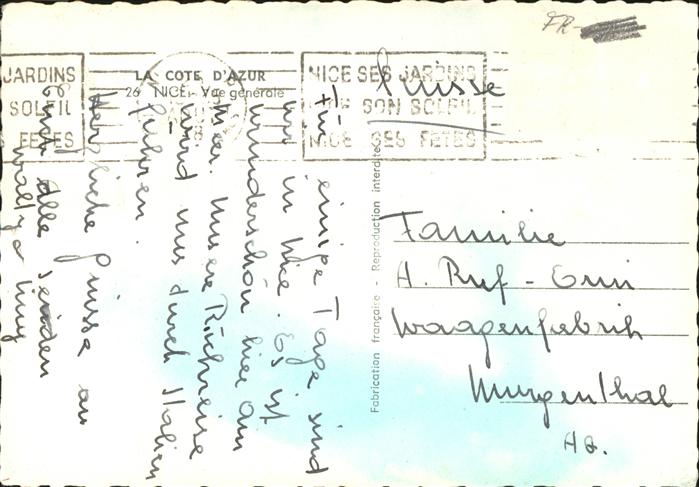 FR-
JARDINS
SOLEIL
FETES
LA COTE D'AZUR
26 NICE - Vue générale
NICE SES JARDINS
NICE SON SOLEIL
NICE SES FETES
Suisse
Für einige Tage sind
wir in Nice. Es ist
wunderschön hier am
Meer. Unsere Rückreise
wird uns durch Italien
führen.
Herzliche Grüsse an
Euch alle senden
Fabrication française - Reproduction interdite
Familie
H. Ruf-
Waagenfabrik
Murgenthal
Ag.